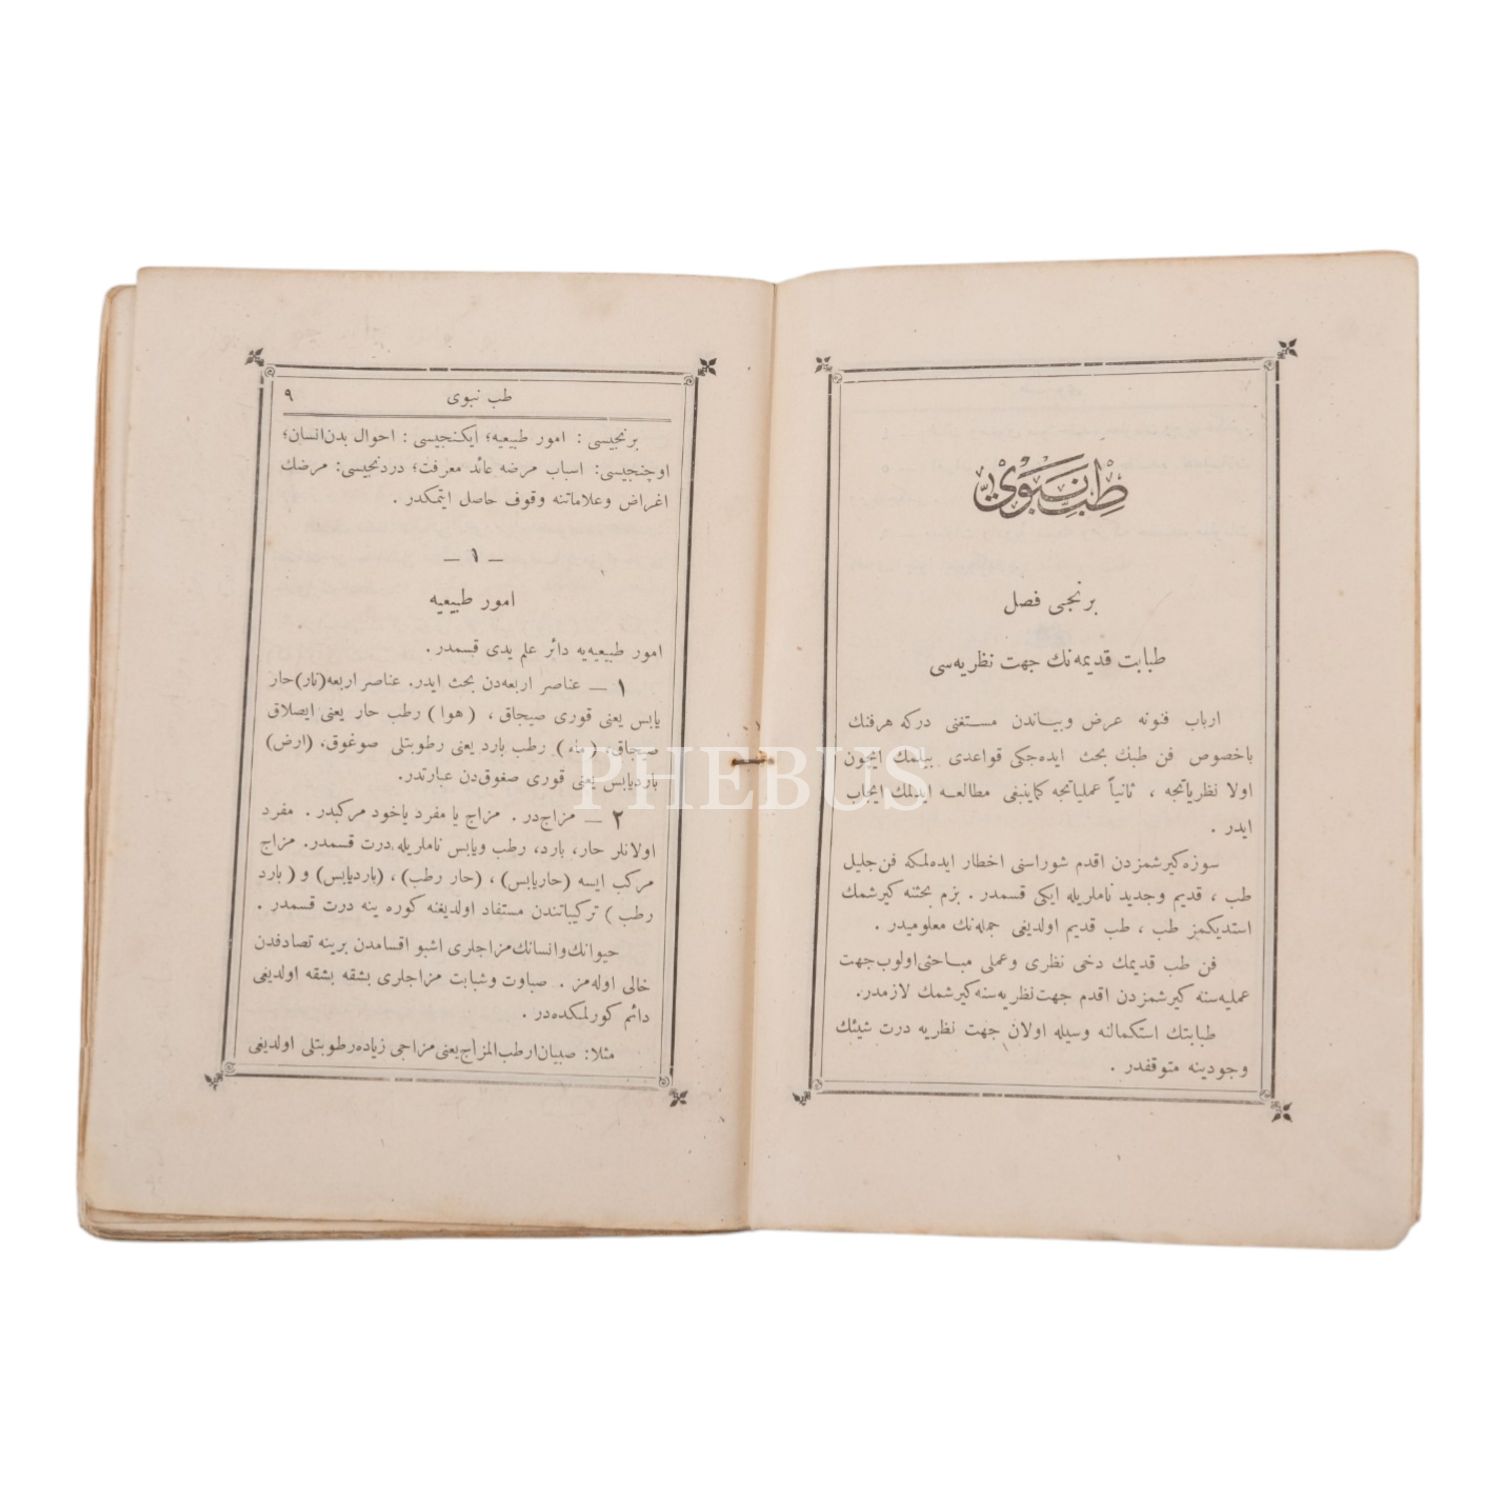 طب نبوی
برنجی فصل
طبابت قدیمه‌نك جهت نظریه‌سی
ارباب فنونه عرض وبیاندن مستغنی درکه هرفنك
باخصوص فن طبك بحث ایده‌جکی قواعدی بیلمك ایچون
اولا نظریاتجه ، ثانیاً عملیاتجه کماینبغی مطالعه ایدلمك ایجاب
ایدر .
سوزه کیرشمزدن اقدم شوراسنی اخطار ایده‌لمکه فن جلیل
طب ، قدیم وجدید ناملریله ایکی قسمدر . بزم بحثنه کیرشمك
استدیکمز طب ، طب قدیم اولدیغی جمله‌نك معلومیدر .
فن طب قدیمك دخی نظری وعملی مباحثی اولوب جهت
عملیه‌سنه کیرشمزدن اقدم جهت نظریه‌سنه کیرشمك لازمدر.
طبابتك استکمالنه وسیله اولان جهت نظریه درت شیئك
وجودینه متوقفدر .
طب نبوی ٩
برنجیسی : امور طبیعیه؛ ایکنجیسی : احوال بدن انسان؛
اوچنجیسی: اسباب مرضه عائد معرفت؛ دردنجیسی: مرضك
اغراض وعلاماتنه وقوف حاصل ایتمکدر .
— ١ —
امور طبیعیه
امور طبیعیه‌یه دائر علم یدی قسمدر .
١ — عناصر اربعه‌دن بحث ایدر. عناصر اربعه (نار) حار
یابس یعنی قوری صیجاق ، (هوا) رطب حار یعنی ایصلاق
صیجاق، (ماء) رطب بارد یعنی رطوبتلی صوغوق، (ارض)
باردیابس یعنی قوری صغوق‌دن عبارتدر.
٢ — مزاج‌در . مزاج یا مفرد یاخود مرکبدر . مفرد
اولانلر حار، بارد، رطب ویابس ناملریله درت قسمدر. مزاج
مرکب ایسه (حاریابس) ، (حار رطب) ، (باردیابس) و (بارد
رطب) ترکیباتندن مستفاد اولدیغنه کوره ینه درت قسمدر .
حیوانك وانسانك مزاجلری اشبو اقسامدن برینه تصادفدن
خالی اوله‌مز . صباوت وشبابت مزاجلری بشقه بشقه اولدیغی
دائم کورلمکده‌در .
مثلا: صبیان ارطب المزاج یعنی مزاجی زیاده رطوبتلی اولدیغی
PHEBUS